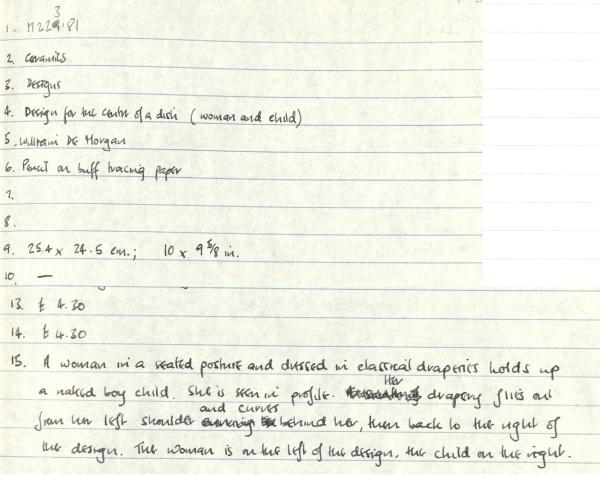 1. M223.81
2. Ceramics
3. Designs
4. Design for the centre of a dish (woman and child)
5. William De Morgan
6. Pencil on buff tracing paper
7.
8.
9. 25.4 x 24.5 cm.; 10 x 9 5/8 in.
10. —
13. £ 4.30
14. £ 4.30
15. A woman in a seated posture and dressed in classical draperies holds up
a naked boy child. She is seen in profile. Her drapery flies out
from her left shoulder and curves behind her, then back to the right of
the design. The woman is on the left of the design, the child on the right.